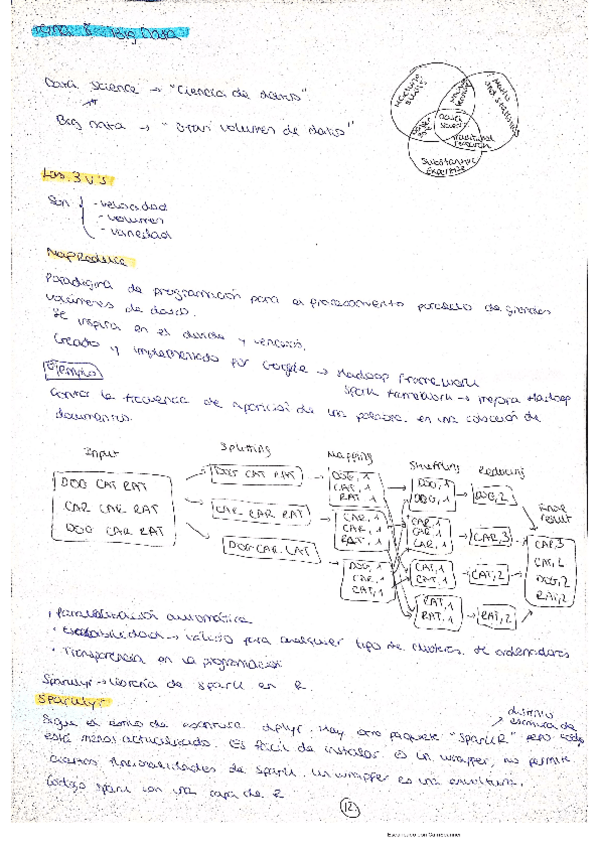 Big Data
Data Science → "Ciencia de datos"
Big Data → "Gran volumen de datos"
Maths and statistics
Data Science
Traditional research
Substantive Expertise
Las 3 V's
Son { - velocidad
- volumen
- variedad
MapReduce
Paradigma de programación para el procesamiento paralelo de grandes
volúmenes de datos.
Se inspira en el divide y vencerás.
Creado y implementado por Google → Hadoop Framework
Spark Framework → mejora Hadoop
Ejemplo
Contar la frecuencia de aparición de una palabra en una colección de
documentos.
Input Splitting Mapping Shuffling Reducing Final result
DOG CAT RAT
CAR CAR RAT
DOG CAR CAT
DOG CAT RAT
CAR CAR RAT
DOG CAR CAT
DOG, 1
CAT, 1
RAT, 1
CAR, 1
CAR, 1
RAT, 1
DOG, 1
CAR, 1
CAT, 1
DOG, 1
DOG, 1
CAR, 1
CAR, 1
CAR, 1
CAT, 1
CAT, 1
RAT, 1
RAT, 1
DOG, 2
CAR, 3
CAT, 2
RAT, 2
CAR, 3
CAT, 2
DOG, 2
RAT, 2
· Paralelización automática
· Escalabilidad → válido para cualquier tipo de clusters de ordenadores
· Transparencia en la programación
Sparklyr → librería de Spark en R
Sparklyr
Sigue el estilo de escritura dplyr. Hay otro paquete "SparkR" pero
está menos actualizado. Es fácil de instalar. Es un wrapper, no permite
ciertas funcionalidades de Spark. Un wrapper es una envoltura.
Código Spark con una capa de R
12
Escaneado con CamScanner